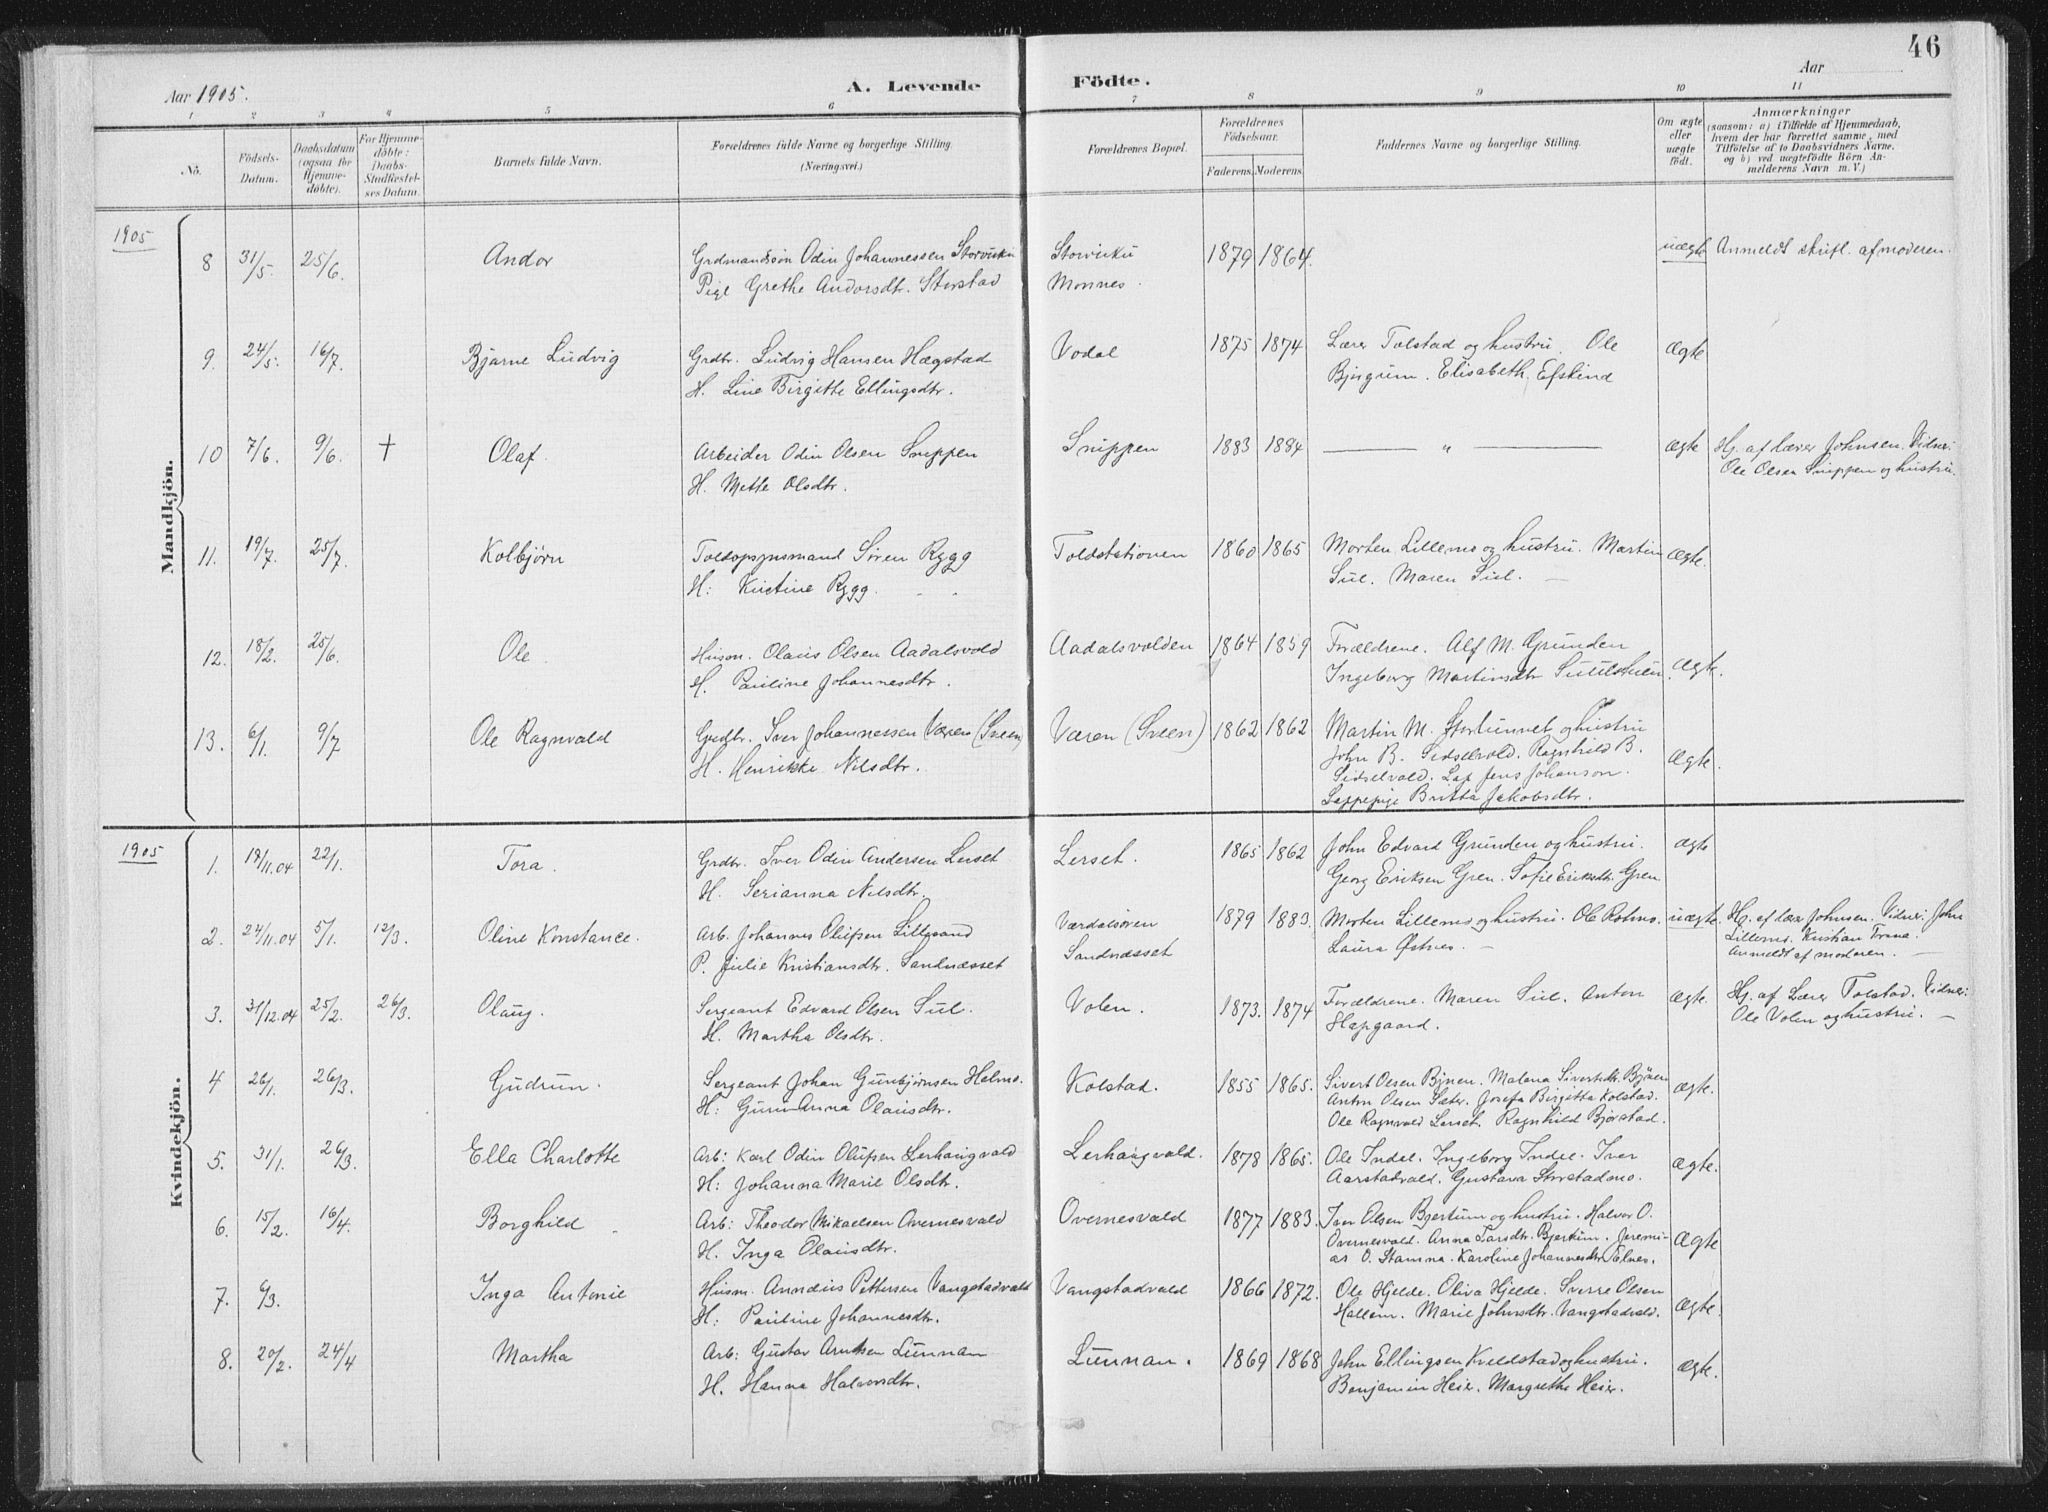 46
Aar 1905.
A. Levende Födte.
Aar
1 2 3 4 5 6 7 8 9 10 11
No.
Födsels-Datum.
Daabsdatum (ogsaa for Hjemme-döbte).
For Hjemme-döbte: Daabs-Stadfæstel-ses Datum.
Barnets fulde Navn.
Forældrenes fulde Navne og borgerlige Stilling.
(Næringsvei.)
Forældrenes Bopæl.
Forældrenes Födselsaar.
Faderens. Moderens.
Faddernes Navne og borgerlige Stilling.
Om ægte eller uægte födt.
Anmærkninger
(saasom: a) i Tilfælde af Hjemmedaab,
hvem der har forrettet samme, med
Tilföielse af to Daabsvidners Navne,
og b) ved uægtefödte Börn An-
melderens Navn m. V.)
Mandkjön.
1905
8 31/5. 25/6. Andor Grdmandssön Odin Johannessen Storvuku Storvuku 1879 1864. uægte Anmeldt skriftl. af moderen.
Pige Grethe Andorsdtr. Storstad Monnes.
9. 24/5. 16/7. Bjarne Ludvig Grdbr. Ludvig Hansen Hægstad Vodal 1875 1874 Lærer Tolstad og hustru. Ole Ægte
H. Line Birgitte Ellingsdtr. Bjugum. Elisabeth Efskind
10 7/6. 9/6. + Olaf. Arbeider Odin Olsen Snippen Snippen 1883 1884 — " — ægte Hj. af lærer Johnsen. Vidner:
H. Mette Olsdtr. Ole Olsen Snippen og hustru.
11. 19/7. 25/7. Kolbjørn Toldopsynsmand Sören Rygg Toldstationen 1860 1865 Morten Lillemo og hustru. Martin Ægte.
H: Kristine Rygg. Sul. Maren Sul. —
12. 18/2. 25/6. Ole. Husm. Olaus Olsen Aadalsvold Aadalsvolden 1864 1859 Forældrene. Alf M. Grunden
H. Pauline Johannesdtr. Ingeborg Martinsdtr Ægte.
13. 6/1. 9/7 Ole Ragnvald Grdbr. Iver Johannessen Væren (Sveen) Væren (Sveen) 1862 1862 Martin M. Storlunnet og hustru
H. Henrikke Nilsdtr. John B. Sidselvold. Ragnhild B. Ægte.
Sidselvold. Lap Jens Johanson.
Lappepige Britta Jakobsdtr.
Kvindekjön.
1905
1. 18/11.04 22/1. Tora. Grdbr. Iver Odin Andersen Lerset Lerset. 1865 1862 John Edvard Grunden og hustru. ægte
H. Serianna Nilsdtr. Georg Eriksen Gren. Sofie Eriksdtr. Gren
2. 24/11.04 5/1. 12/3. Oline Konstance. Arb. Johannes Olufsen Lillesand Værdalsören 1879 1883. Morten Lillemo og hustru. Ole Rotmo. uægte. Hj. af lærer Johnsen. Vidner: John
P. Julie Kristiansdtr. Sandnæsset Sandnæsset Laura Östnes. — Lillemo. Kristian Trana.
Anmeldt af moderen. —
3. 31/12.04 25/2. 26/3. Olaug. Sergeant Edvard Olsen Sul. Volen. 1873. 1874 Forældrene. Maren Sul. Anton ægte. Hj. af Lærer Tolstad. Vidner:
H. Martha Olsdtr. Hapgaard. Ole Volen og hustru. —
4 26/1. 26/3. Gudrun. Sergeant Johan Gunbjørnsen Helmo. Kolstad. 1855 1865. Sivert Olsen Bynen. Malena Sivertsdtr. Bjönen ægte.
H: Gurun Anna Olausdtr. Anton Olsen Sæter. Josefa Birgitta Kolstad.
Ole Ragnvald Lerset. Ragnhild Bjørstad.
5. 31/1. 26/3. Ella Charlotte Arb: Karl Odin Olufsen Lerhaugvald Lerhaugvald. 1878 1865. Ole Indal. Ingeborg Indal. Iver ægte.
H: Johanna Marie Olsdtr. Aarstadvald. Gustava Storstadmo.
6. 15/2. 16/4. Borghild Arb: Theodor Mikaelsen Overnesvald Overnesvald 1877 1883. Iver Olsen Bjertum og hustru. Halvor O.
H. Inga Olausdtr. Overnesvald. Anna Larsdtr. Bjertum. Jeremi- Ægte
as O. Stamna. Karoline Johannesdtr. Elnes.
7. 6/3. Inga Antonie Husm. Annæus Pettersen Vangstadvald Vangstadvald 1866 1872. Ole Hjelde. Oliva Hjelde. Sverre Olsen
H: Pauline Johannesdtr. Hallem. Marie Johnsdtr. Vangstadvald. Ægte.
8. 20/2. 24/4 Martha Arb: Gustav Arntsen Lunnan Lunnan. 1869 1868 John Ellingsen Kveldstad og hustru.
H. Hanna Halvorsdtr. Benjamin Heier. Margrethe Heier. ægte.